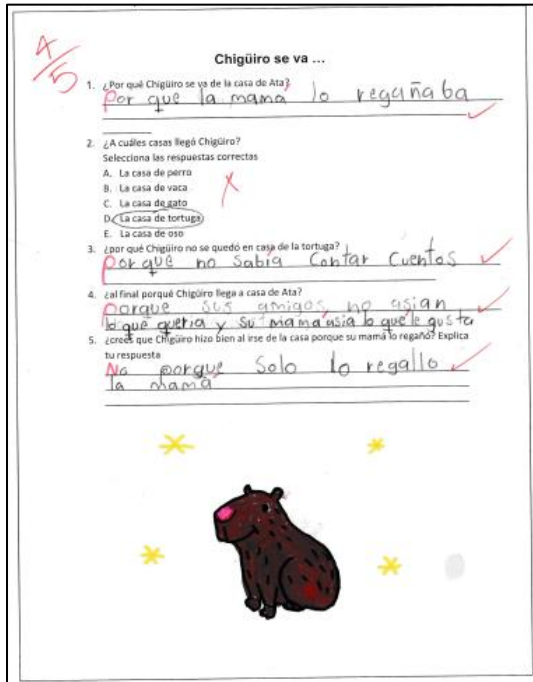 4/5
Chigüiro se va ...
1. ¿Por qué Chigüiro se va de la casa de Ata?
Por que la mamá lo regañaba
2. ¿A cuáles casas llegó Chigüiro?
Selecciona las respuestas correctas
A. La casa de perro
B. La casa de vaca
C. La casa de gato
D. La casa de tortuga
E. La casa de oso
3. ¿por qué Chigüiro no se quedó en casa de la tortuga?
Por que no sabía Contar Cuentos
4. ¿al final porqué Chigüiro llega a casa de Ata?
Porque sus amigos no asían
lo que quería y su mamá asía lo que le gusta
5. ¿crees que Chigüiro hizo bien al irse de la casa porque su mamá lo regañó? Explica
tu respuesta
No porque Solo lo regallo
la mamá